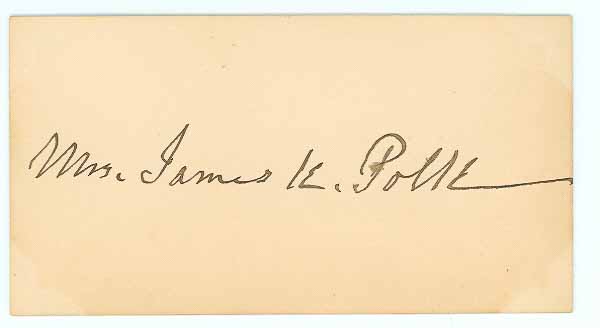 Mrs. James K. Polk